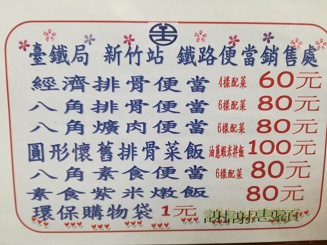 臺鐵局 新竹站 鐵路便當銷售處
經濟排骨便當 4樣配菜 60元
八角排骨便當 6樣配菜 80元
八角爌肉便當 6樣配菜 80元
圓形懷舊排骨菜飯 油蔥蝦米拌飯 100元
八角素食便當 6樣配菜 80元
素食紫米燉飯 80元
環保購物袋 1元 謝謝惠顧